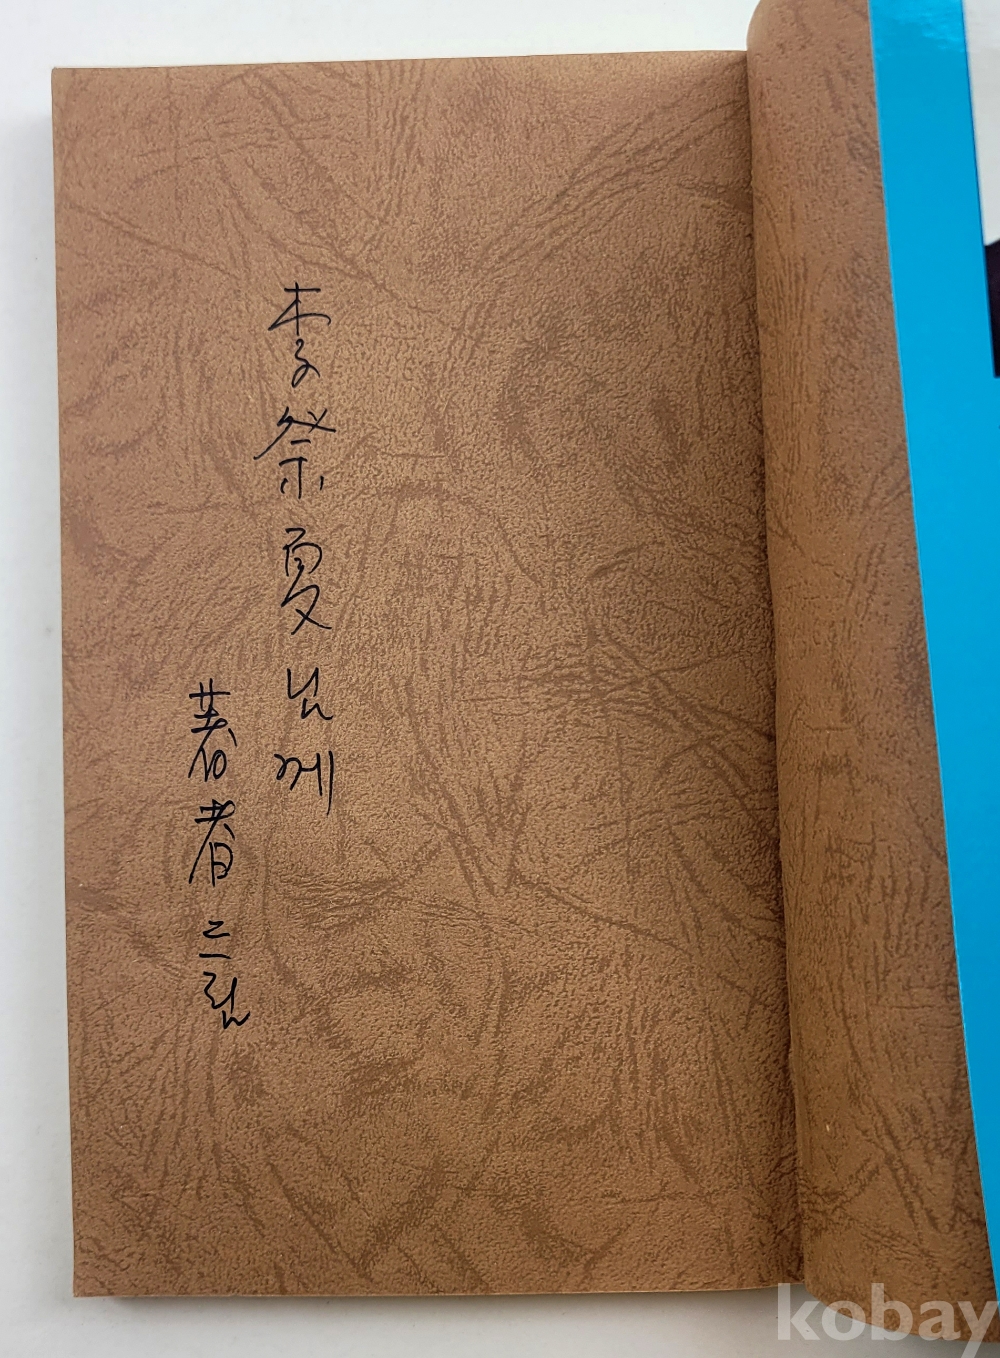 李祭夏님께
著者드림
kobay